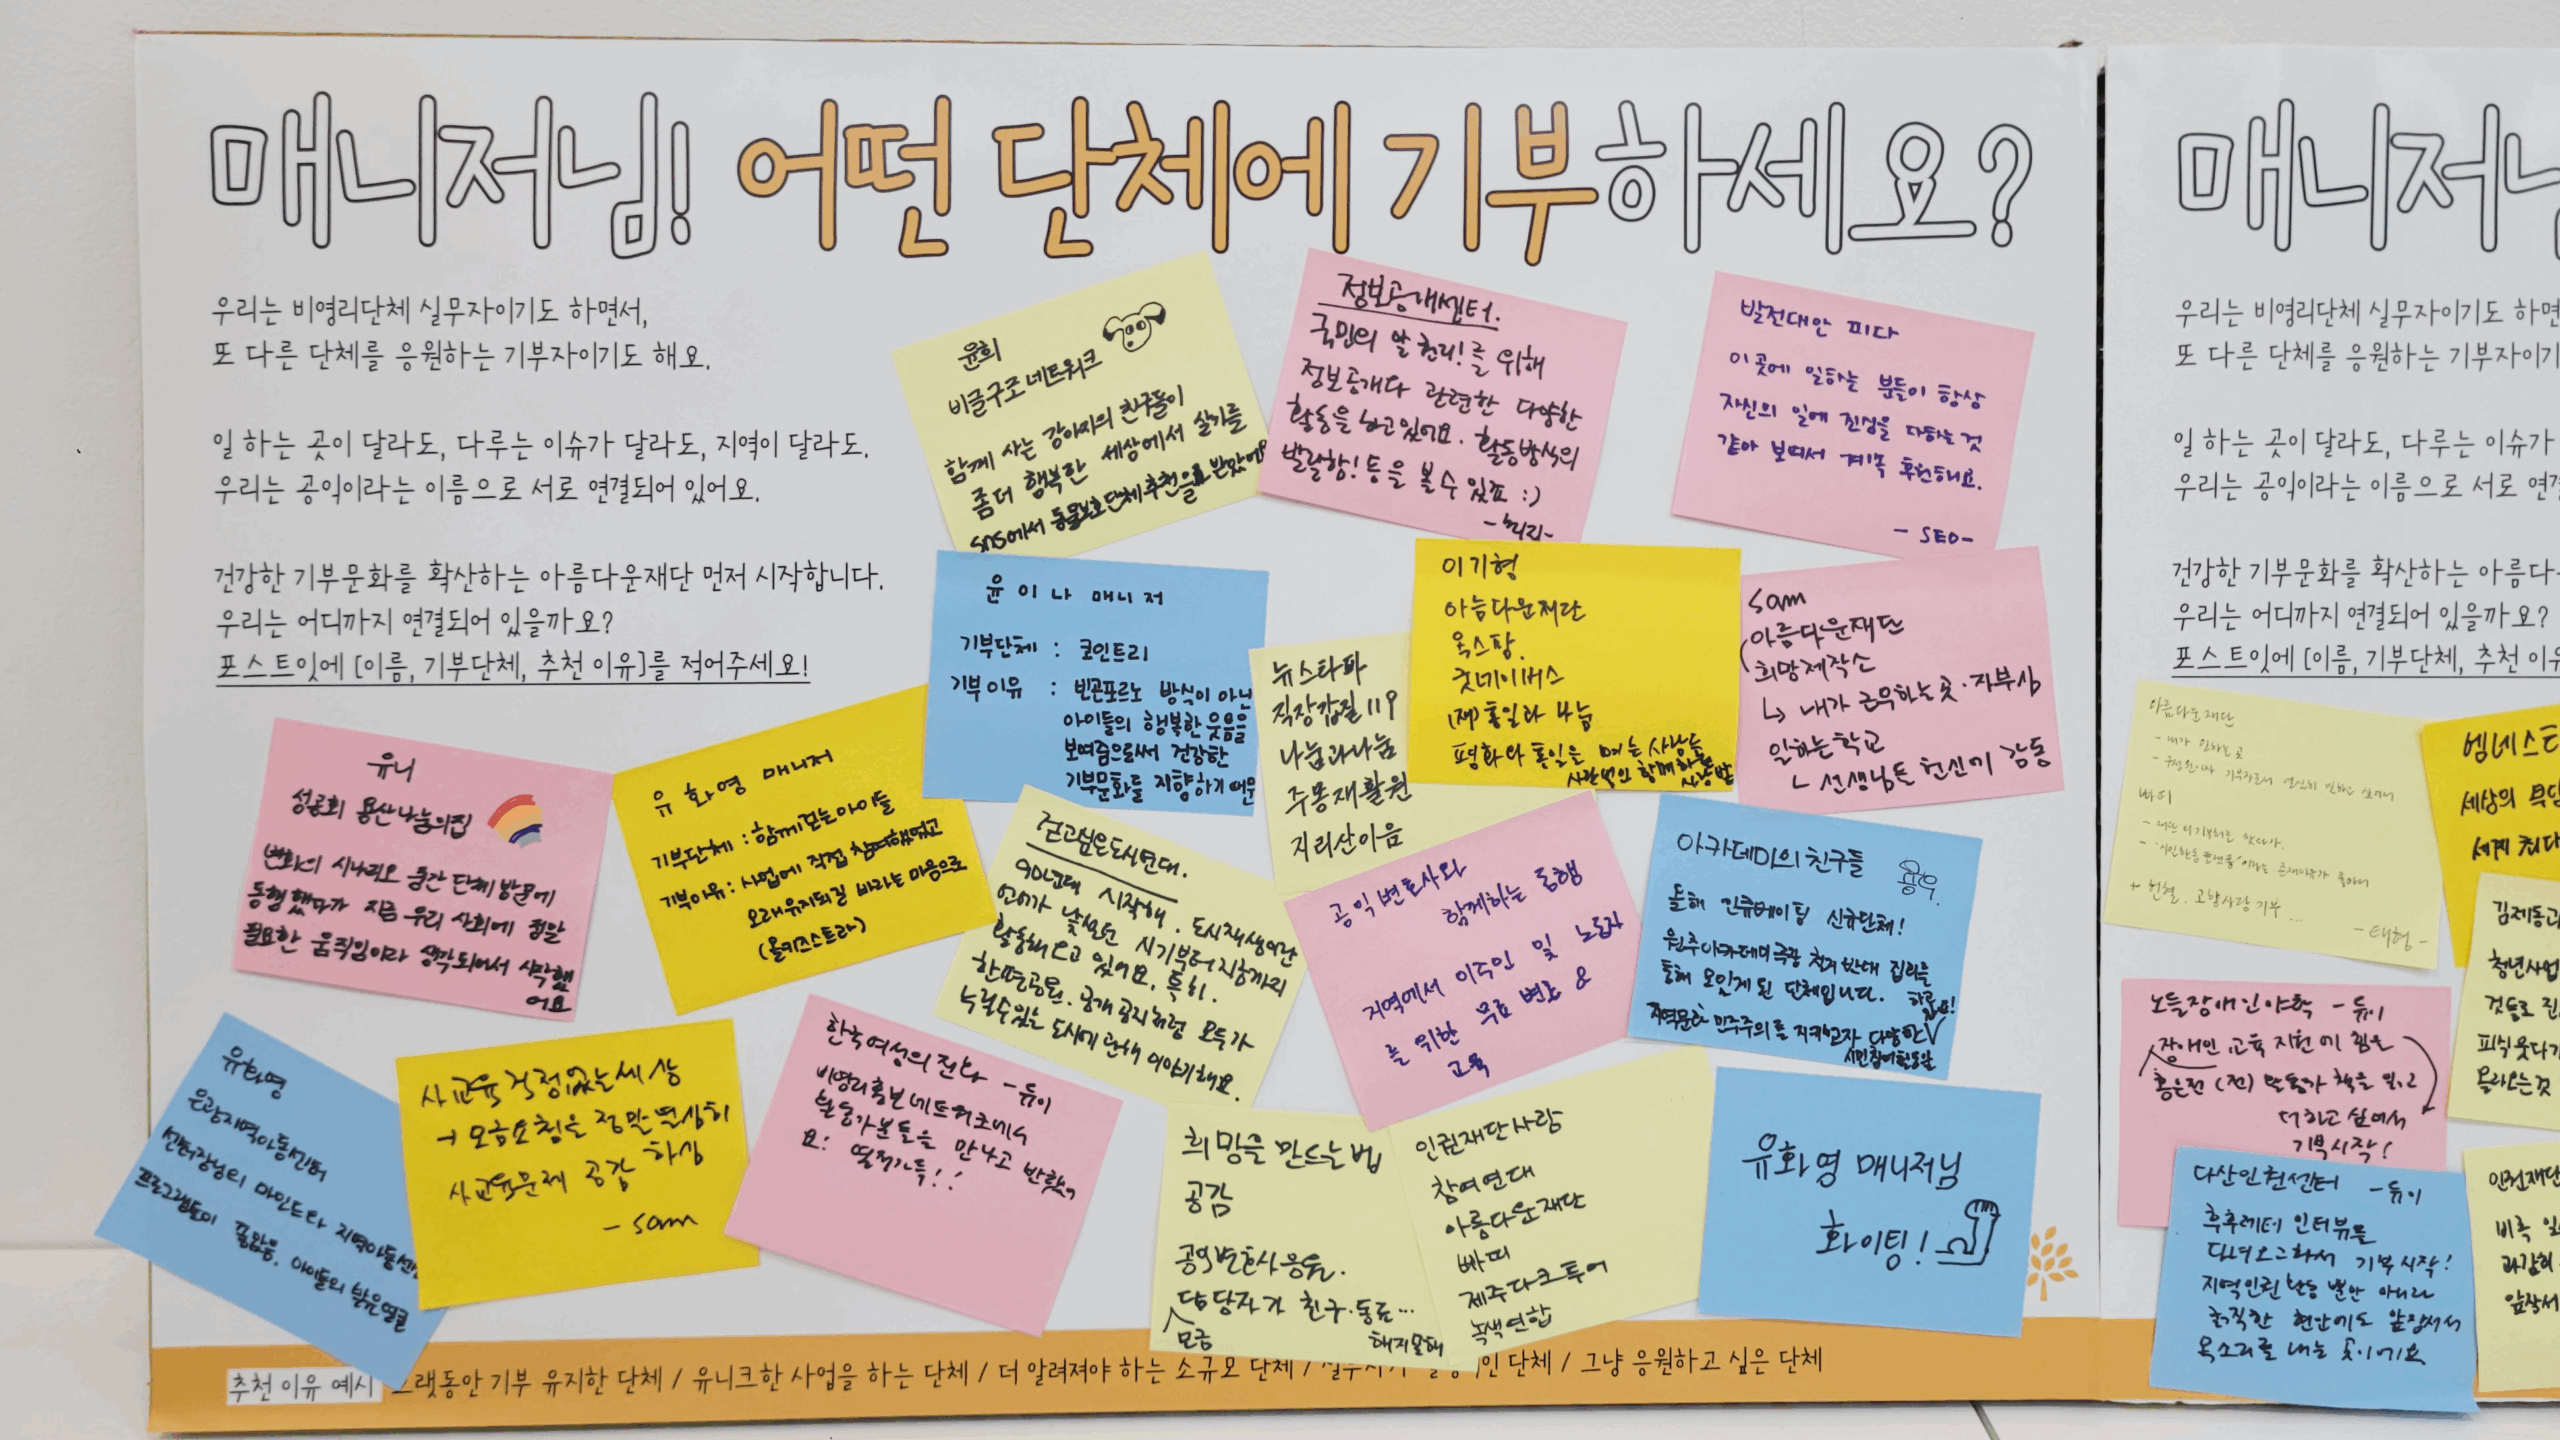 매니저님! 어떤 단체에 기부하세요?
우리는 비영리단체 실무자이기도 하면서,
또 다른 단체를 응원하는 기부자이기도 해요.
일 하는 곳이 달라도, 다루는 이슈가 달라도, 지역이 달라도.
우리는 공익이라는 이름으로 서로 연결되어 있어요.
건강한 기부문화를 확산하는 아름다운재단 먼저 시작합니다.
우리는 어디까지 연결되어 있을까요?
포스트잇에 [이름, 기부단체, 추천 이유]를 적어주세요!
윤희
비글구조네트워크
함께 사는 강아지의 친구들이
좀 더 행복한 세상에서 살기를
SNS에서 동물보호단체 추천을 받았어
정보공개센터.
국민의 알 권리!를 위해
정보공개다 관련한 다양한
활동을 하고 있어요. 활동방식의
발랄함! 등을 볼 수 있죠 :)
발전대안 피다
이곳에 일하는 분들이 항상
자신의 일에 진심을 다하는 것
같아 보여서 계속 후원해요.
- SEO-
윤이나 매니저
기부단체 : 코인트리
기부이유 : 빈곤포르노 방식이 아닌
아이들의 행복한 웃음을
보여줌으로써 건강한
기부문화를 지향하기 때문
뉴스타파
직장갑질 119
나눔과나눔
주몽재활원
지리산이음
이기형
아름다운재단
옥스팜.
굿네이버스
(재)통일과 나눔
평화와 통일을 여는 사람들
sam
아름다운재단
희망제작소
↳ 내가 근무하는 곳·자부심
일하는학교
↳ 선생님들 헌신에 감동
유니
성공회 용산나눔의집
변화의 시나리오 중간 단체 방문에
동행했다가 지금 우리 사회에 정말
필요한 움직임이라 생각되어서 시작했
어요
유화영 매니저
기부단체 : 함께걷는아이들
기부이유 : 사업에 직접 참여했었고
오래 유지되길 바라는 마음으로
(올키즈스트라)
걷고싶은도시연대.
90년대 시작해. 도시재생이란
언어가 낯설던 시기부터 지금까지
활동해오고 있어요. 특히.
한평공원. 공개공지처럼 모두가
누릴 수 있는 도시에 관해 이야기해요.
공익변호사와
함께하는 동행
지역에서 이주민 및 노동자
를 위한 무료 변호 &
교육
아카데미의 친구들
올해 인큐베이팅 신규단체!
원주아카데미극장 철거 반대 집회를
통해 모이게 된 단체입니다.
지역문화 민주주의를 지키고자 다양한
시민참여활동을
유화영
은광지역아동센터
센터장님의 마인드와 지역아동센터
프로그램들이 좋았음. 아이들의 밝은얼굴
사교육걱정없는세상
→ 모금요청을 정말 열심히
하심
사교육문제 공감
- sam
한국여성의전화 - 듀이
비영리홍보네트워크에서
활동가분들을 만나고 반했어
요! 열정가득!!
희망을만드는법
공감
공익변호사 응원.
담당자가 친구·동료...
모금
해지못해
인권재단사람
참여연대
아름다운재단
빠띠
제주다크투어
녹색연합
유화영 매니저님
화이팅!
추천 이유 예시
그랫동안 기부 유지한 단체 / 유니크한 사업을 하는 단체 / 더 알려져야 하는 소규모 단체 /
인 단체 / 그냥 응원하고 싶은 단체
매니저
우리는 비영리단체 실무자이기도 하면
또 다른 단체를 응원하는 기부자이기
일 하는 곳이 달라도, 다루는 이슈가
우리는 공익이라는 이름으로 서로 연
건강한 기부문화를 확산하는 아름다
우리는 어디까지 연결되어 있을까요?
포스트잇에 [이름, 기부단체, 추천 이
아름다운재단
- 내가 일하는 곳
빠띠
+ 헌혈. 고향사랑기부...
- 태형 -
엠네스트
세상의
세계 최대
노들장애인야학 - 듀이
장애인 교육 지원에 힘을
홍은전 (전) 활동가 책을 읽고
더하고 싶어서
기부시작!
다산인권센터 - 듀이
후후레터 인터뷰를
다녀오고나서 기부시작!
지역인권 활동 뿐만 아니라
굵직한 현안에도 앞장서서
목소리를 내는 곳이에요
김제동과
청년사업
것들로
피식웃다가
올라오는것
인권재단
비록
과감히
앞장서